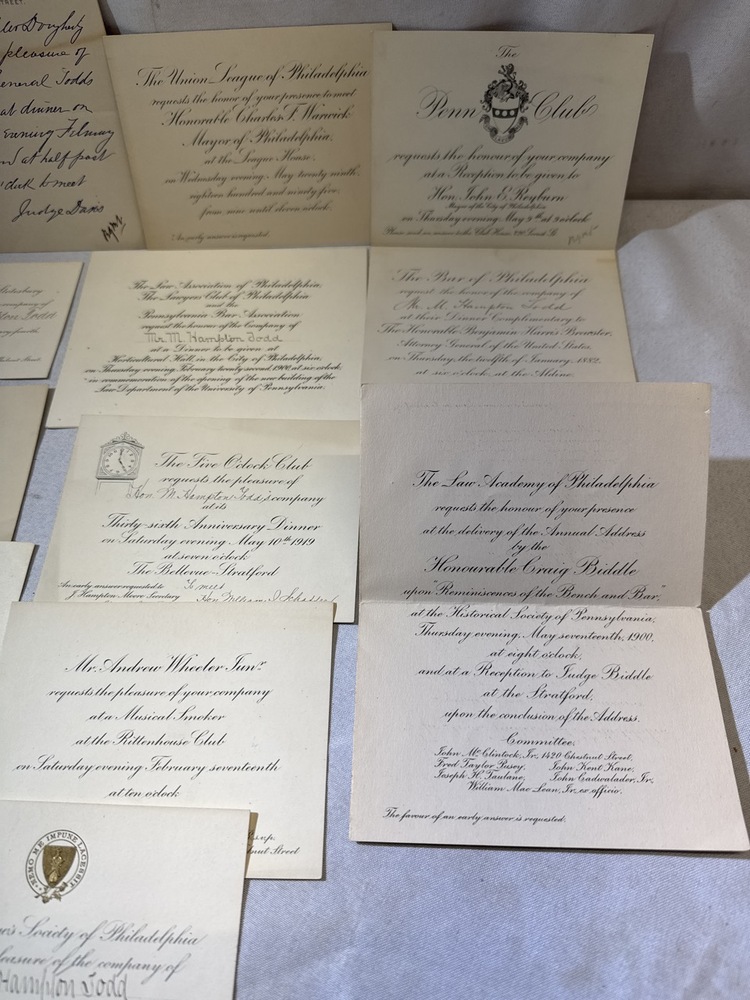 STREET.
Dougherty
pleasure of
General Todds
at dinner on
Evening
at half past
to meet
Judge Davis
The Union League of Philadelphia
requests the honor of your presence to meet
Honorable Charles F. Warwick
Mayor of Philadelphia,
at the League House,
on Wednesday evening, May twenty ninth,
eighteen hundred and ninety-five,
from nine until eleven o'clock.
An early answer is requested.
The
Penn Club
requests the honour of your company
at a Reception to be given to
Hon. John E. Reyburn
Mayor of the City of Philadelphia
on Thursday evening May 9th at 9 o'clock
company of
Todd
The Law Association of Philadelphia,
The Lawyers' Club of Philadelphia
and the
Pennsylvania Bar Association
request the honour of the Company of
Mr. M. Hampton Todd
at a Dinner to be given at
Horticultural Hall, in the City of Philadelphia,
on Thursday evening February twenty second, 1900, at six o'clock,
in commemoration of the opening of the new building of the
Law Department of the University of Pennsylvania.
The Bar of Philadelphia
request the honor of the company of
Mr. M. Hampton Todd
at their Dinner Complimentary to
The Honorable Benjamin Harris Brewster,
Attorney General of the United States,
on Thursday, the twelfth of January, 1882,
at six o'clock, at the Aldine.
The Five O'Clock Club
requests the pleasure of
Hon. M. Hampton Todd's company
at its
Thirty-sixth Anniversary Dinner
on Saturday evening May 10th 1919
at seven o'clock
The Bellevue-Stratford
An early answer requested to
J. Hampton Moore Secretary
To meet
Hon. William I. Schaffer
The Law Academy of Philadelphia
requests the honour of your presence
at the delivery of the Annual Address
by the
Honourable Craig Biddle
upon "Reminiscences of the Bench and Bar,"
at the Historical Society of Pennsylvania,
Thursday evening, May seventeenth, 1900,
at eight o'clock,
and at a Reception to Judge Biddle
at the Stratford,
upon the conclusion of the Address.
Committee,
John McClintock, Jr., 1420 Chestnut Street,
Fred Taylor Pusey, John Kent Kane,
Joseph H. Taulane, John Cadwalader, Jr.
William Mac Lean, Jr. ex officio.
The favour of an early answer is requested.
Mr. Andrew Wheeler Junr.
requests the pleasure of your company
at a Musical Smoker
at the Rittenhouse Club
on Saturday evening February seventeenth
at ten o'clock
Street
NEMO ME IMPUNE LACESSIT
Society of Philadelphia
pleasure of the company of
Hampton Todd